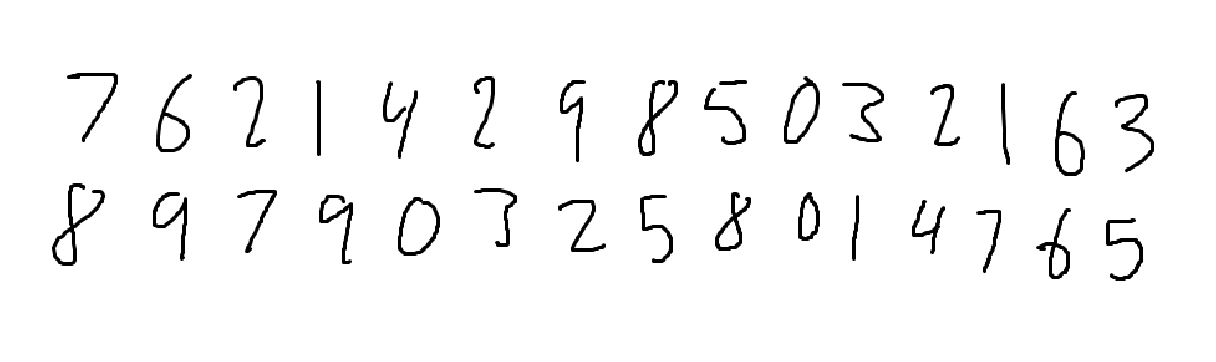 7 6 2 1 4 2 9 8 5 0 3 2 1 6 3
8 9 7 9 0 3 2 5 8 0 1 4 7 6 5